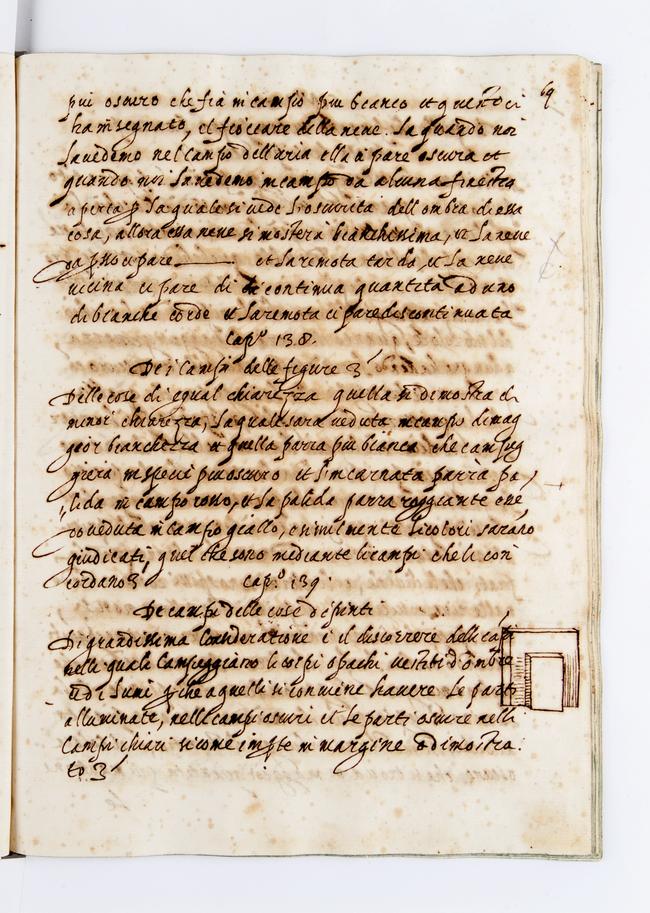 69
piu oscuro che sia in campo piu bianco et questo ci
ha insegnato, el fioccare della neve. La quando noi
la vedemo nel campo dell'aria ella ci pare oscura et
quando noi la vedemo in campo da alcuna finestra
aperta p la quale si vede l'oscurita dell ombra di essa
cosa, allora essa neve si mostera bianchissima, et la neve
da pso ci pare et la remota tarda, et la neve
vicina ci pare di continua quantita ad uno
di bianche corde et la remota ci pare discontinuata
cap.o 138.
De i campi delle figure 3
Delle cose di equal chiarezza quella si dimostra di
minor chiarezza, la quale sara veduta in campo di mag
gior bianchezza et quella parra piu bianca che campeg
giera in spetii piu oscuro et l'incarnata parra pa
lida in campo rosso, et la palida parra roggiante ese
do veduta in campo giallo, e similmente li colori sarano
giudicati, quel che sono mediante li campi che li con
cordano 3
cap.o 139.
De campi delle cose depinti
Di grandissima consideratione è il discorrere delli capi
nelli quale campeggiano li corpi opachi vestiti d'ombre
et di lumi p che a quelli si convine havere le parti
alluminate, nelli campi oscuri et le parti oscure nelli
campi chiari si come in pte in margine o dimostra.
to 3